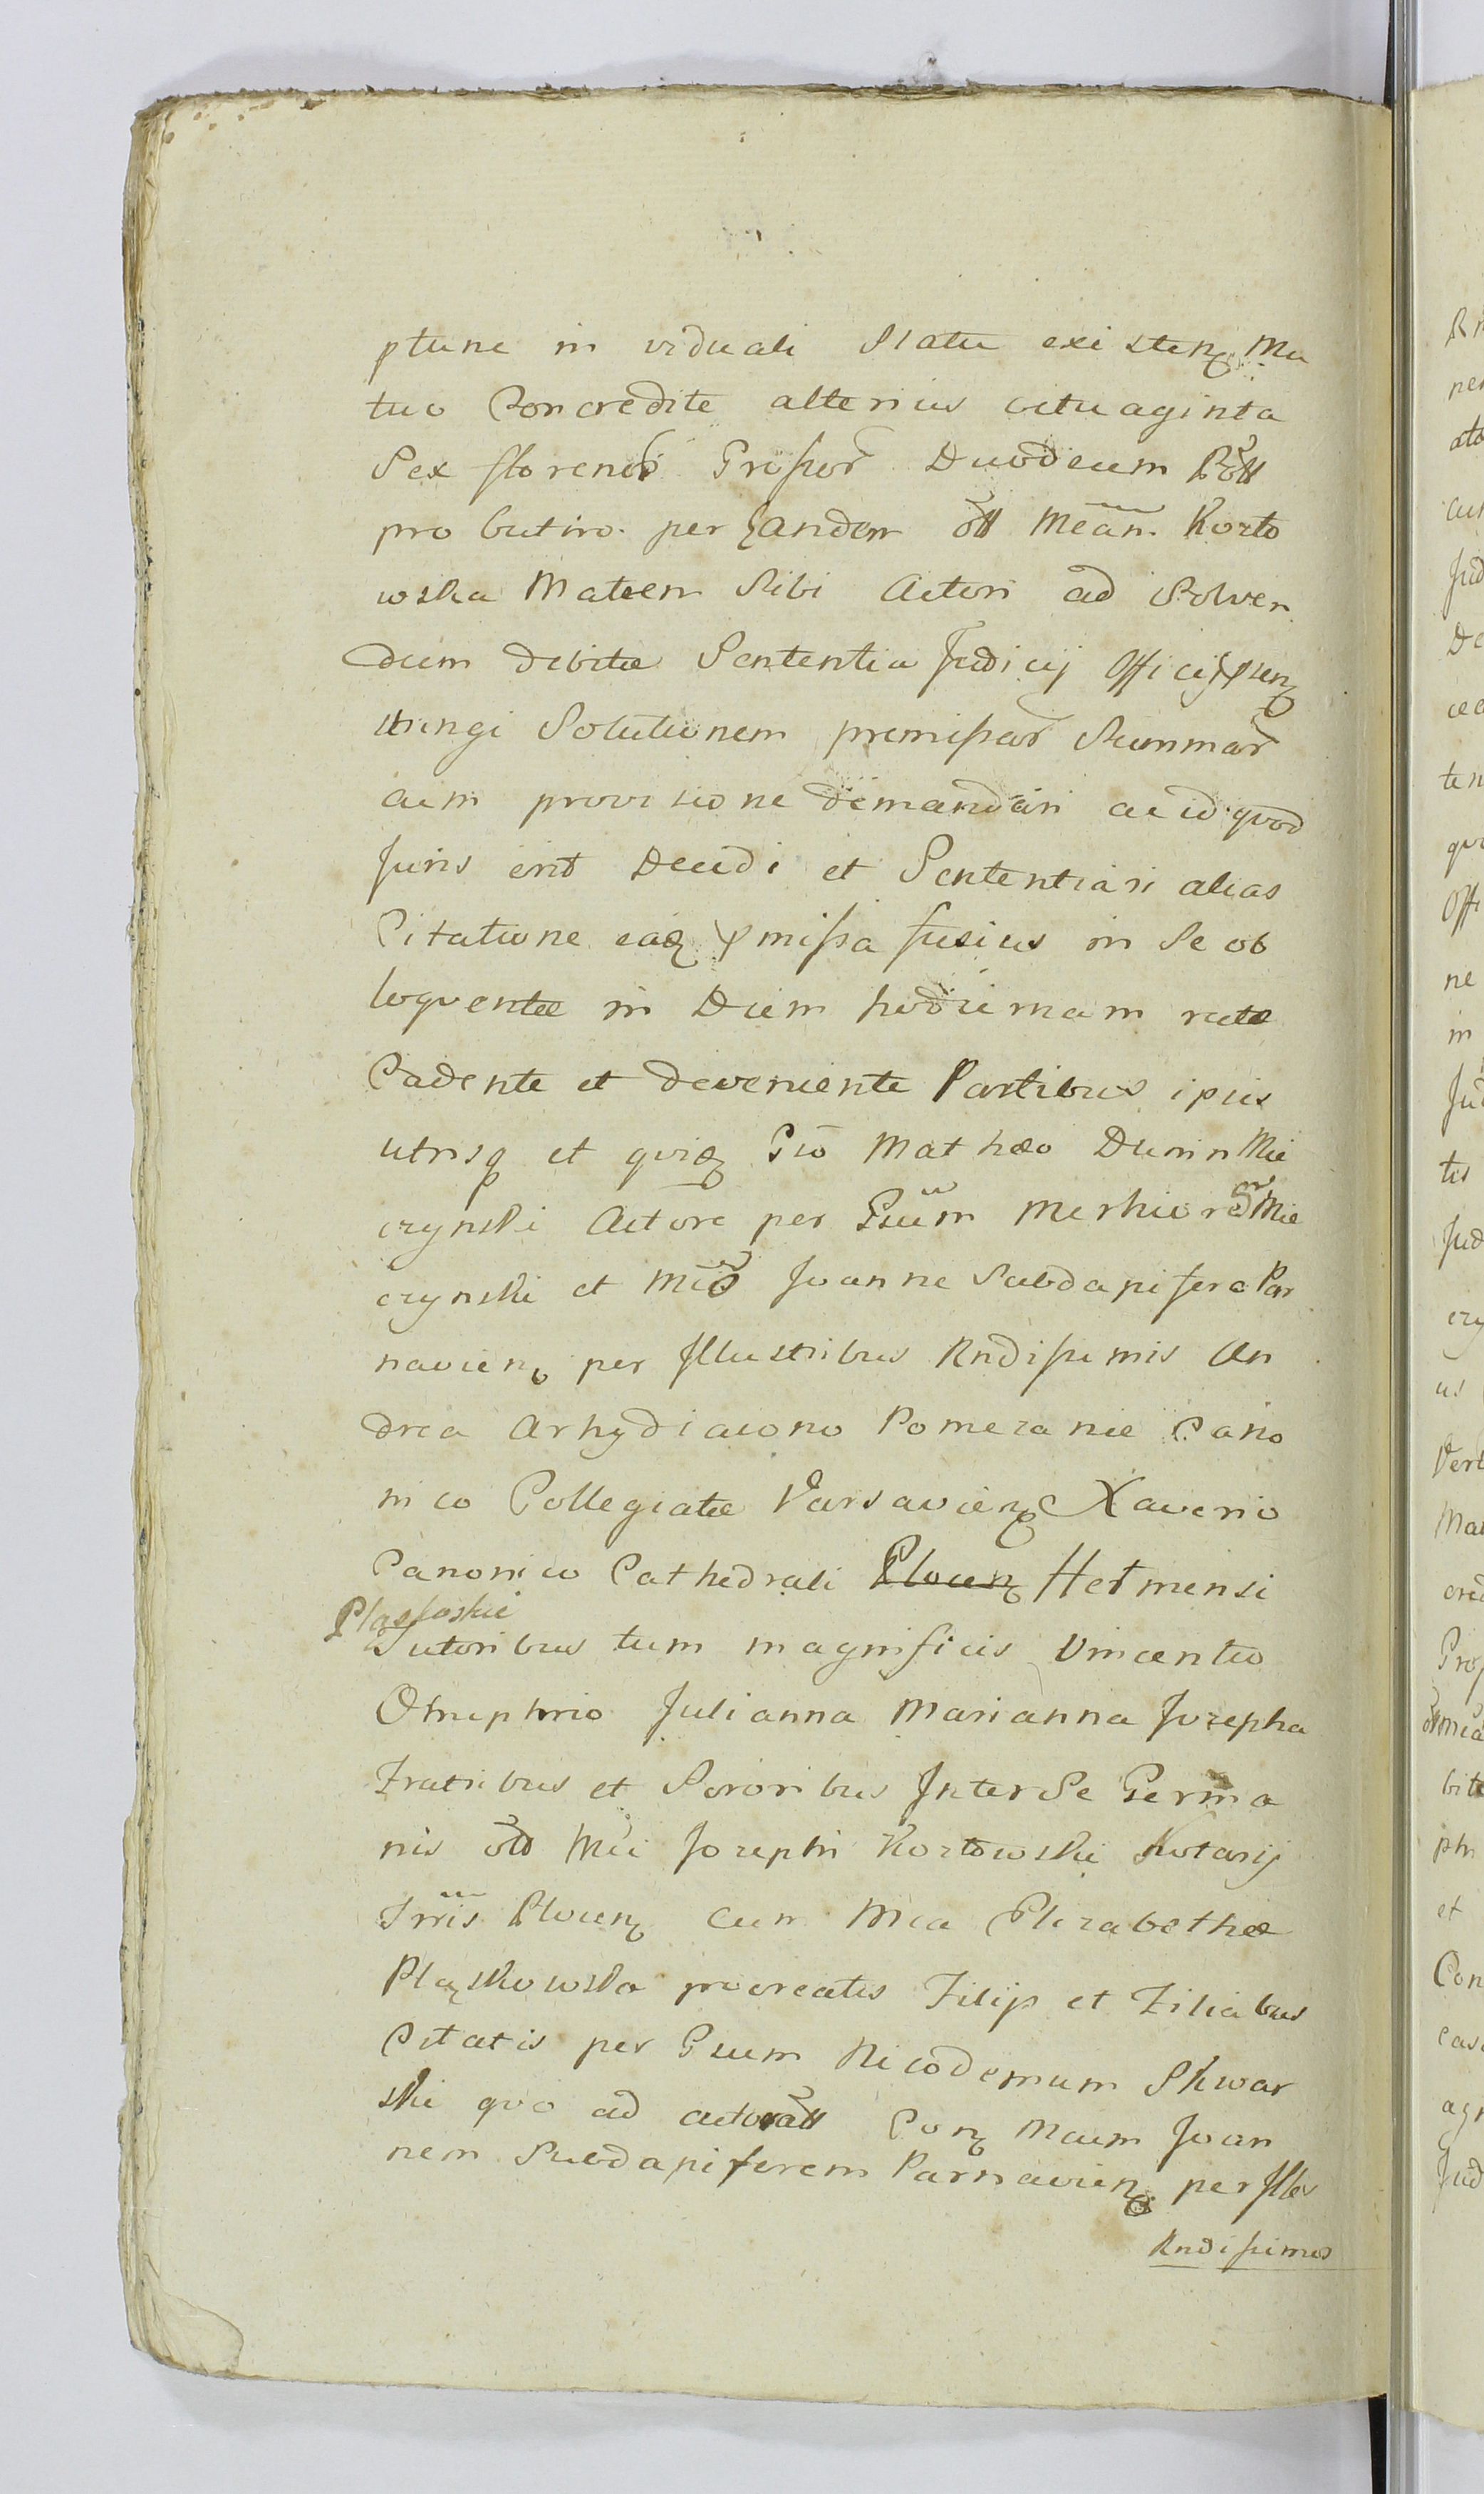 ptunc in viduali Statu existenz Mu
tuo Concredite alterius octuaginta
Sex florenor Grossor Duodecim
pro butiro per eandem olt Mcam Kozło
wska Matrem Sibi Actori ad Solven
dum debitæ Sententia Judicij Officij
stringi Solutionem premissar Summar
cum provisione demandari ac id quod
Juris erit Decidi et Sententiari alias
Citatione eaq pmissa fusius in Se ob
loquentæ in Diem hodiernam rite
Cadente et deveniente Partibus ipsis
utrisq et quidem Gso Mathæo Dunin Mie
czynski Actore per Gsum Merhiorem Mie
czynski et Mco Joanne Subdapifero Par
navienz per Illustribus Rndissimis An
drea Arhydiacono Pomeranie Cano
nico Collegiatæ Varsavienz Xaverio
Canonico Cathedrali Plocenz Helmensi
Plaskoskie
Tutoribus tum magnificis Vincentio
Onuphrio Julianna Marianna Jozepha
Fratribus et Sororibus Inter Se Germa
nis olt Mci Jozephi Kozłowski Notarij
Trris Plocenz cum Mca Elizabetha
Pląskowska procreatis Filijs et Filiabus
Citatis per Gsum Nicodemum Skwar
ski quo ad actorat Conz Mcum Joan
nem Subdapiferem Parnavienz per Illes
Rndissimos